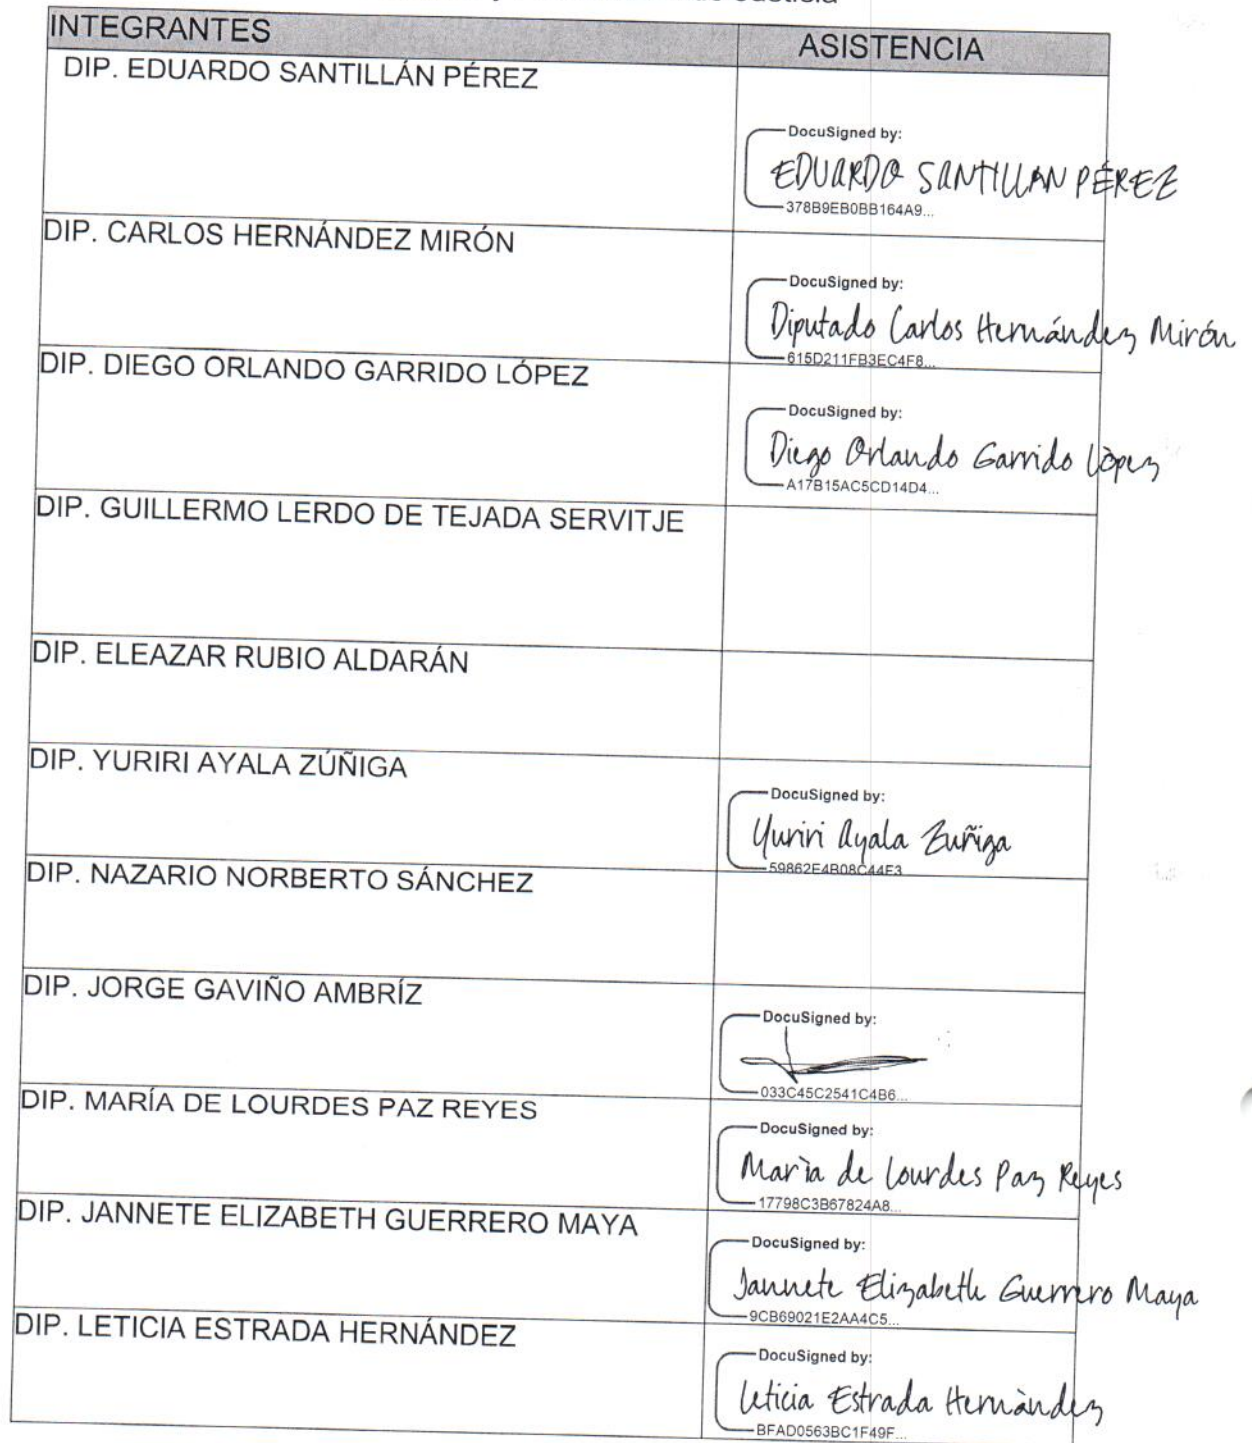 INTEGRANTES
ASISTENCIA
DIP. EDUARDO SANTILLÁN PÉREZ
DocuSigned by:
EDUARDO SANTILLAN PÉREZ
378B9EB0BB164A9...
DIP. CARLOS HERNÁNDEZ MIRÓN
DocuSigned by:
Diputado Carlos Hernández Mirón
615D211FB3EC4F8...
DIP. DIEGO ORLANDO GARRIDO LÓPEZ
DocuSigned by:
Diego Orlando Garrido Lòpez
A17B15AC5CD14D4...
DIP. GUILLERMO LERDO DE TEJADA SERVITJE
DIP. ELEAZAR RUBIO ALDARÁN
DIP. YURIRI AYALA ZÚÑIGA
DocuSigned by:
Yuriri Ayala Zuñiga
59862E4B08C44E3
DIP. NAZARIO NORBERTO SÁNCHEZ
DIP. JORGE GAVIÑO AMBRÍZ
DocuSigned by:
033C45C2541C4B6...
DIP. MARÍA DE LOURDES PAZ REYES
DocuSigned by:
Marìa de Lourdes Paz Reyes
17798C3B67824A8...
DIP. JANNETE ELIZABETH GUERRERO MAYA
DocuSigned by:
Jannete Elizabeth Guerrero Maya
9CB69021E2AA4C5...
DIP. LETICIA ESTRADA HERNÁNDEZ
DocuSigned by:
Leticia Estrada Hernàndez
BFAD0563BC1F49F...